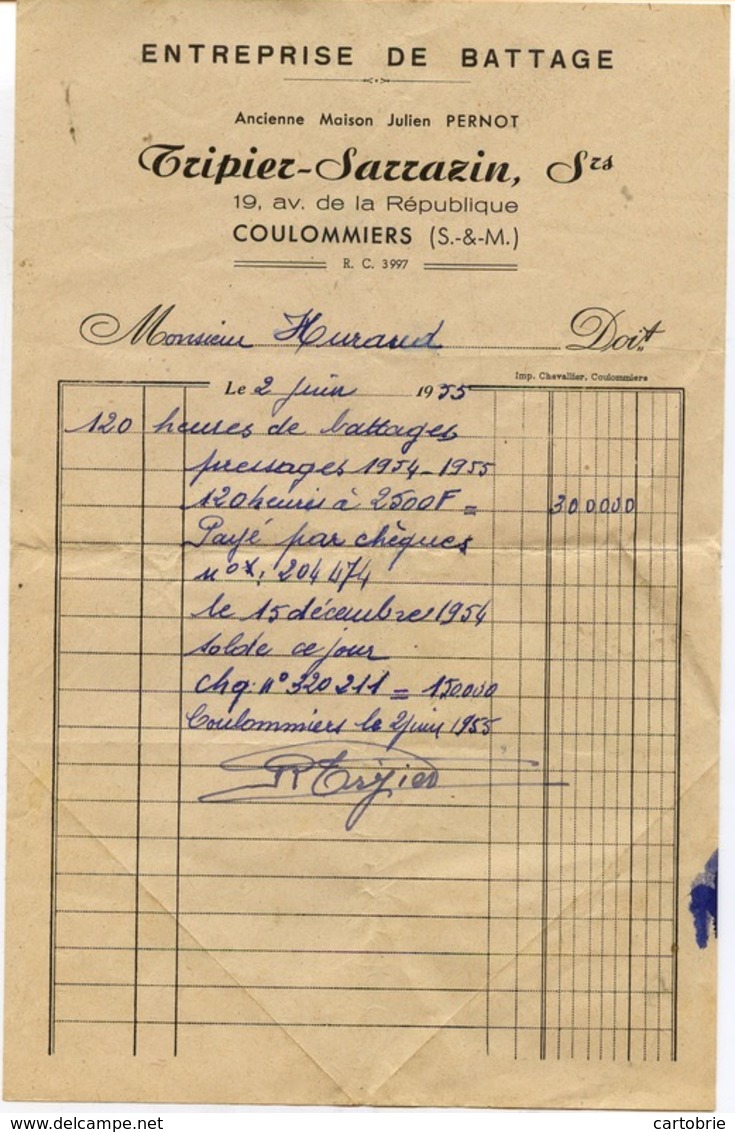 ENTREPRISE DE BATTAGE
Ancienne Maison Julien PERNOT
Tripier-Sarrazin, Srs
19, av. de la République
COULOMMIERS (S.-&-M.)
R. C. 3997
Monsieur Huraud Doit
Imp. Chevallier, Coulommiers
Le 2 juin 1955
120 heures de battages
pressages 1954-1955
120 heures à 2500F = 300000
Payé par chèques
n°s: 204474
le 15 décembre 1954
solde ce jour
chq. n° 320211 = 150000
Coulommiers le 2 juin 1955
R Tripier
delcampe.net
cartobrie